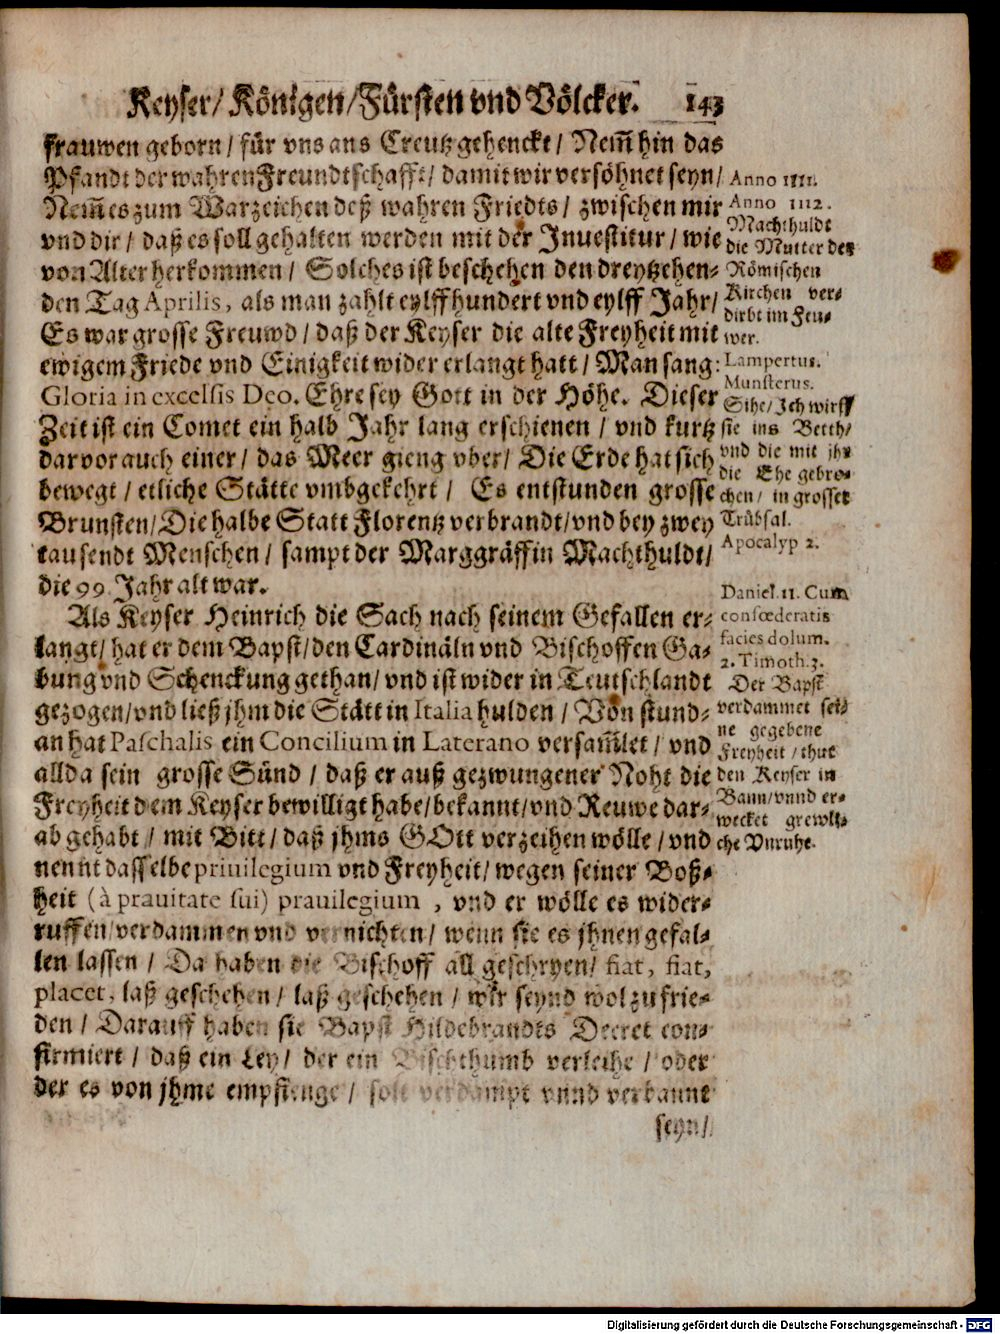 Keyser/ Königen/Fürsten vnd Völcker. 143
frauwen geborn/ für vns ans Creutz gehenckt/ Nem̃ hin das
Pfandt der wahren Freundtschafft/ damit wir versöhnet seyn/
Nem̃ es zum Warzeichen deß wahren Friedts/ zwischen mir
vnd dir/ daß es soll gehalten werden mit der Inuestitur/ wie
von Alter herkommen/ Solches ist beschehen den dreytzehen-
den Tag Aprilis, als man zahlt eylffhundert vnd eylff Jahr/
Es war grosse Freuwd/ daß der Keyser die alte Freyheit mit
ewigem Friede vnd Einigkeit wider erlangt hatt/ Man sang:
Gloria in excelsis Deo. Ehre sey Gott in der Höhe. Dieser
Zeit ist ein Comet ein halb Jahr lang erschienen/ vnd kurtz
darvor auch einer/ das Meer gieng vber/ Die Erde hat sich
bewegt/ etliche Stätte vmbgekehrt/ Es entstunden grosse
Brunsten/ Die halbe Statt Florentz verbrandt/ vnd bey zwey
tausendt Menschen/ sampt der Marggräffin Machthuldt/
die 99. Jahr alt war.
Als Keyser Heinrich die Sach nach seinem Gefallen er-
langt/ hat er dem Bapst/ den Cardinäln vnd Bischoffen Ga-
bung vnd Schenckung gethan/ vnd ist wider in Teutschlandt
gezogen/ vnd ließ jhm die Stätt in Italia hulden/ Von stund-
an hat Paschalis ein Concilium in Laterano versam̃let/ vnd
allda sein grosse Sünd/ daß er auß gezwungener Noht die
Freyheit dem Keyser bewilligt habe/ bekannt/ vnd Reuwe dar-
ab gehabt/ mit Bitt/ daß jhms GOtt verzeihen wölle/ vnd
nennt dasselbe priuilegium vnd Freyheit/ wegen seiner Boß-
heit (à prauitate sui) prauilegium, vnd er wölle es wider-
ruffen/ verdammen vnd vernichten/ wenn sie es jhnen gefal-
len lassen/ Da haben die Bischoff all geschryen/ fiat, fiat,
placet, laß geschehen/ laß geschehen/ wir seynd wol zu frie-
den/ Darauff haben sie Bapst Hildebrandts Decret con-
firmiert/ daß ein Ley/ der ein Bischthumb verleihe/ oder
der es von jhme empfienge/ solt verdampt vnnd verbannt
seyn/
Anno 1111.
Anno 1112.
Machthuldt
die Mutter der
Römischen
Kirchen ver-
dirbt im Feu-
wer.
Lampertus.
Munsterus.
Sihe/ Ich wirff
sie ins Betth/
vnd die mit jhr
die Ehe gebro-
chen/ in grosser
Trübsal.
Apocalyp 2.
Daniel. 11. Cum
confœderatis
facies dolum.
2. Timoth. 3.
Der Bapst
verdammet sei-
ne gegebene
Freyheit/ thut
den Keyser in
Bann/ vnnd er-
wecket grewli-
che Vnruhe.
Digitalisierung gefördert durch die Deutsche Forschungsgemeinschaft - DFG